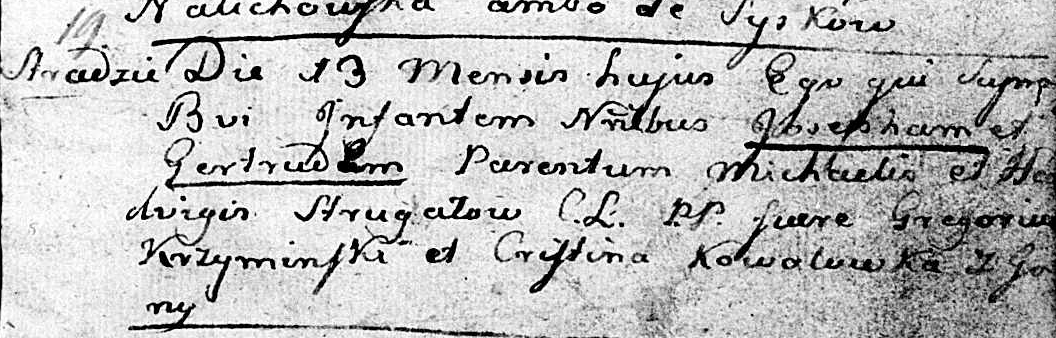 Nalichowska ambo de Syskow
19
Stradzie Die 13 Mensis hujus Ego qui supra
Bvi Infantem Nñibus Josepham et
Gertrudem Parentum Michaelis et He
dvigis Strugałow C.L. P.P. fuere Gregorius
Krzyminski et Cristina Kowalowka z Go
ny